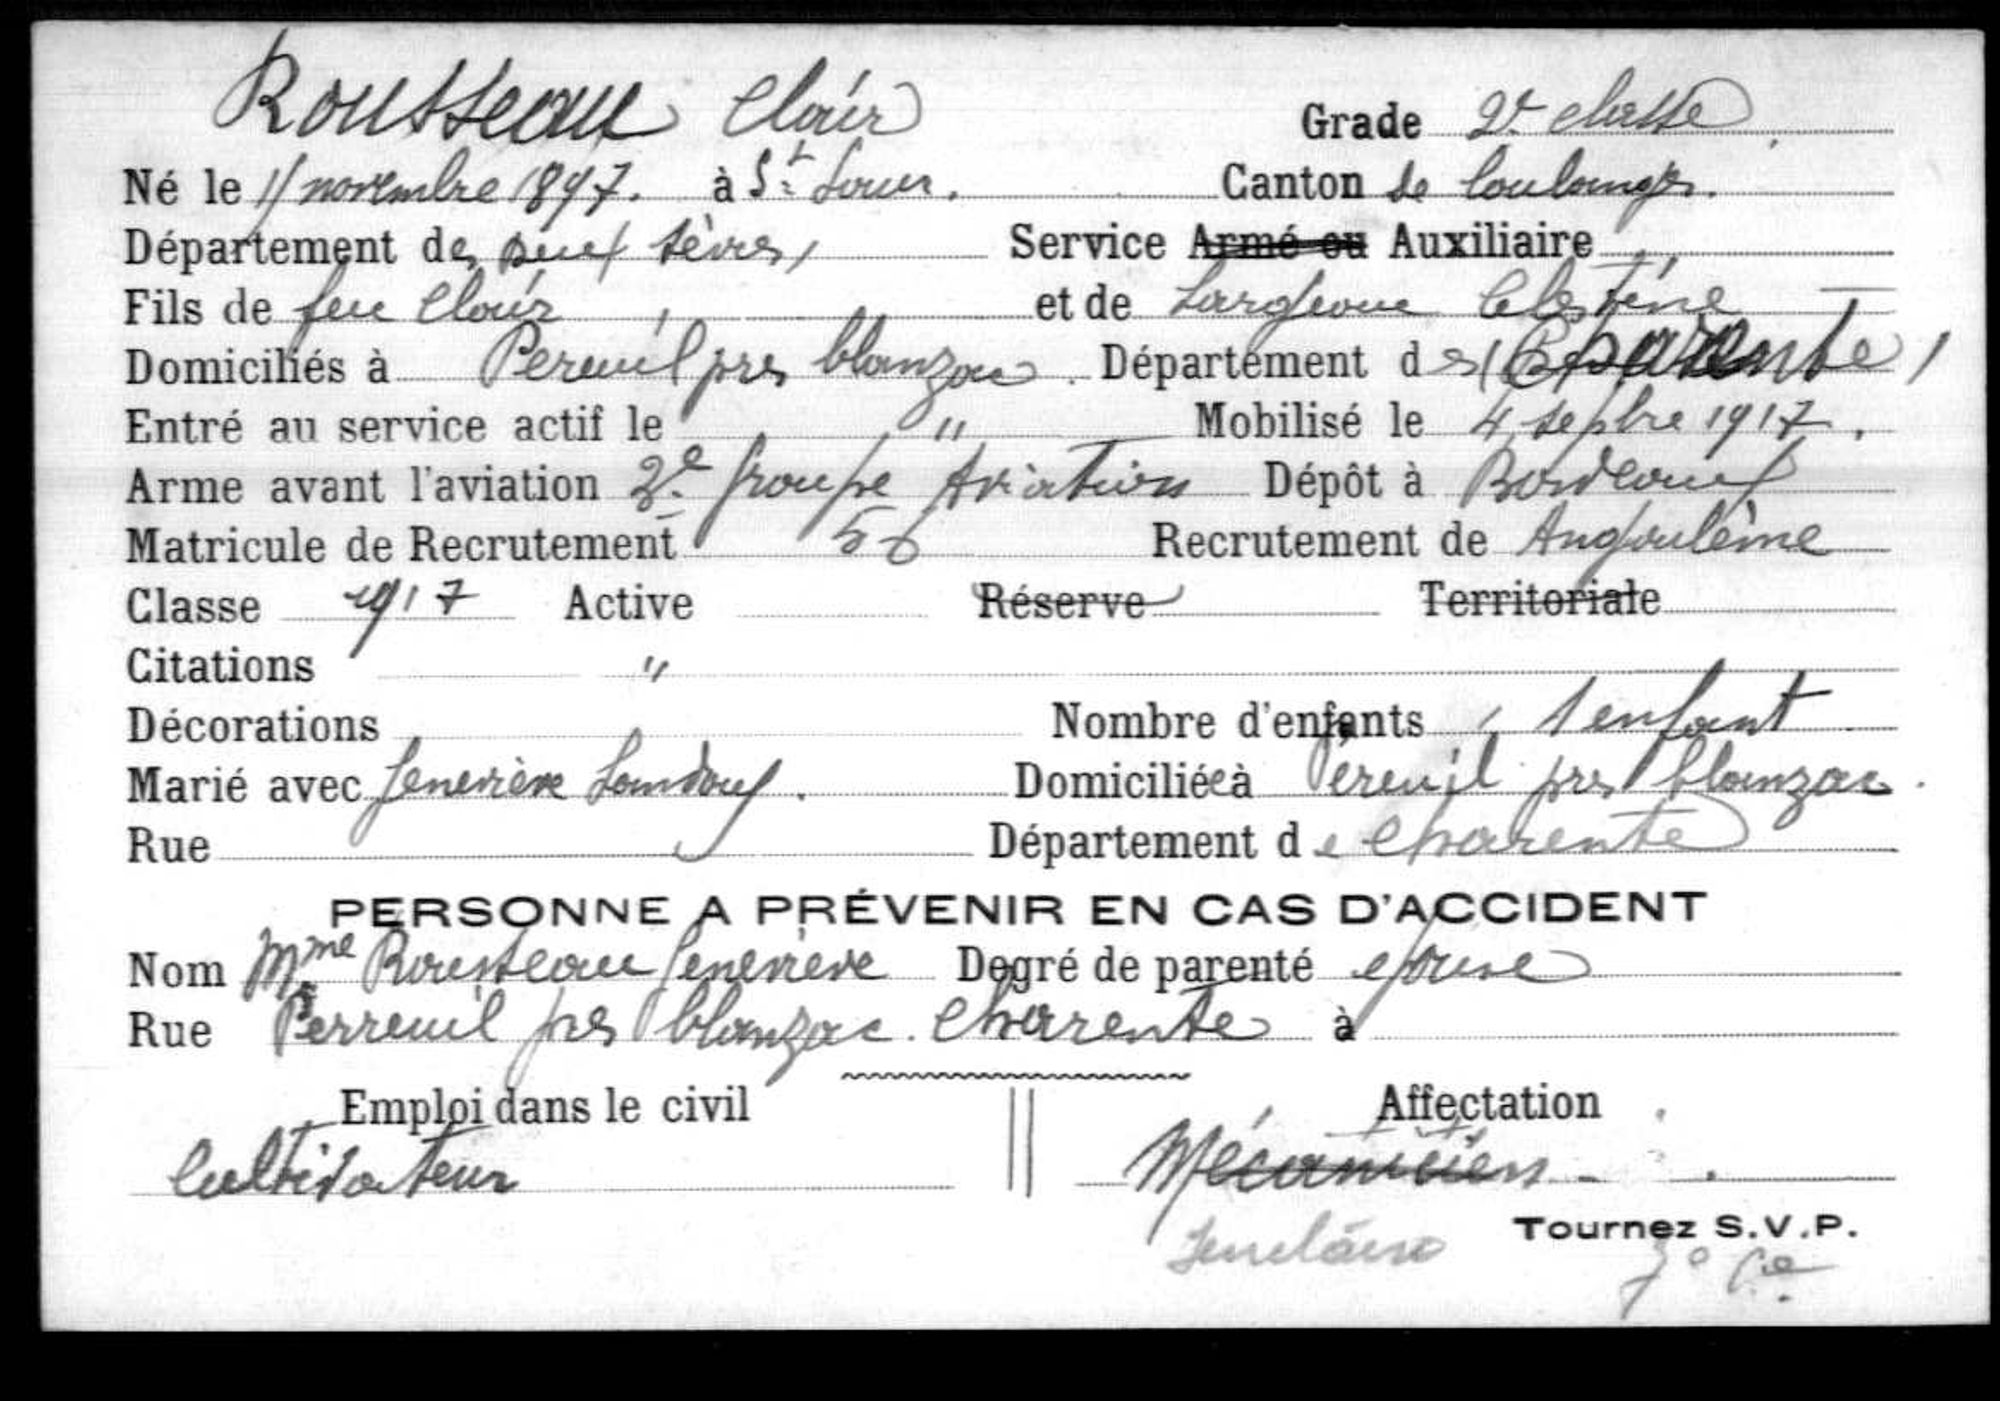 Rousseau Clair Grade 2e classe
Né le 11 novembre 1897. à St Canton de Coulonges.
Département des deux Sèvres, Service Armé ou Auxiliaire
Fils de feu Clair et de Largeau Célestine
Domiciliés à Pereuil près blanzac Département de Charente
Entré au service actif le " Mobilisé le 4 sepbre 1917.
Arme avant l'aviation 2e groupe Aviation Dépôt à Bordeaux
Matricule de Recrutement 56 Recrutement de Angoulème
Classe 1917 Active Réserve Territoriale
Citations "
Décorations Nombre d'enfants 1 enfant
Marié avec Geneviève Domiciliée à Péreuil près blanzac.
Rue Département de Charente
PERSONNE A PRÉVENIR EN CAS D'ACCIDENT
Nom Mme Rousseau Geneviève Degré de parenté épouse
Rue Perreuil près blanzac. Charente à
Emploi dans le civil Affectation
Cultivateur Mécanicien
Tournez S.V.P.
7e Cie